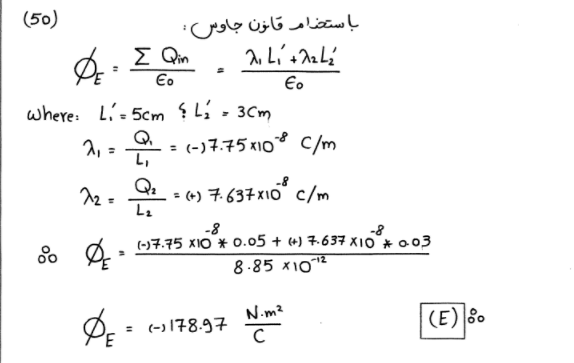 (50)
باستخدام قانون جاوس :
Φ_E = Σ Qin / ϵ₀ = λ₁ L₁′ + λ₂ L₂′ / ϵ₀
where: L₁′ = 5cm ؟ L₂′ = 3cm
λ₁ = Q₁ / L₁ = (-) 7.75 x10⁻⁸ C/m
λ₂ = Q₂ / L₂ = (+) 7.637x10⁻⁸ C/m
∴ Φ_E = (-)7.75 x10⁻⁸ * 0.05 + (+) 7.637 x10⁻⁸ * 0.03 / 8.85 x10⁻¹²
Φ_E = (-) 178.97 N.m² / C
(E) ∴